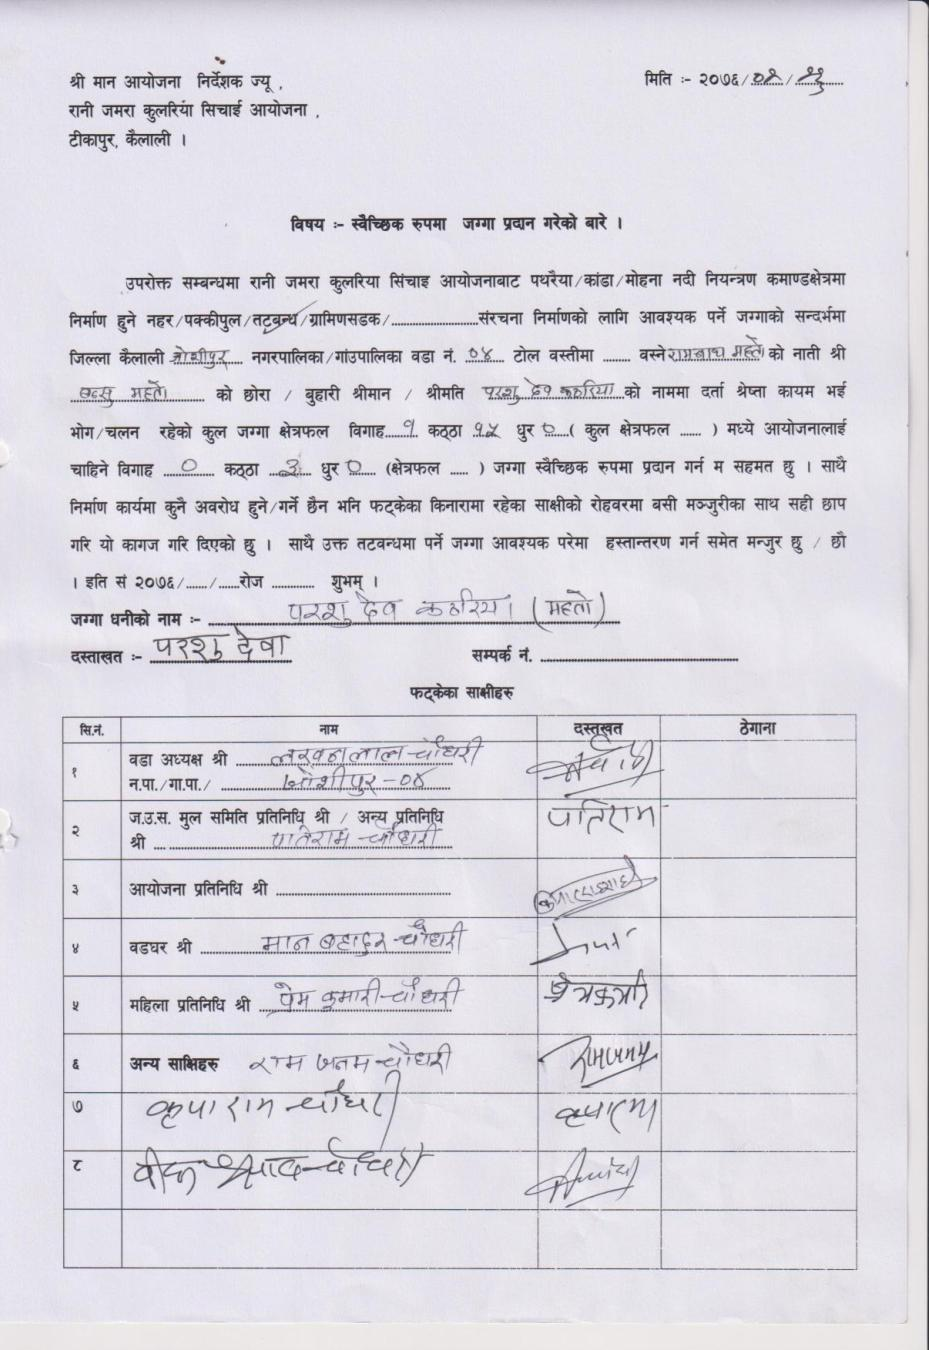 श्री मान आयोजना निर्देशक ज्यू ,
मिति :- २०७६/०२/
रानी जमरा कुलरिया सिचाई आयोजना ,
टीकापुर, कैलाली ।
विषय :- स्वैच्छिक रुपमा जग्गा प्रदान गरेको बारे ।
उपरोक्त सम्बन्धमा रानी जमरा कुलरिया सिंचाइ आयोजनाबाट पथरैया/कांडा/मोहना नदी नियन्त्रण कमाण्डक्षेत्रमा
निर्माण हुने नहर/पक्कीपुल/तटबन्ध/ग्रामिणसडक/........................संरचना निर्माणको लागि आवश्यक पर्ने जग्गाको सन्दर्भमा
जिल्ला कैलाली जोशीपुर नगरपालिका/गांउपालिका वडा नं. ०४ टोल वस्तीमा ........ वस्ने महतो को नाती श्री
महतो को छोरा / बुहारी श्रीमान / श्रीमति परशु देव कठरिया को नाममा दर्ता श्रेष्ता कायम भई
भोग/चलन रहेको कुल जग्गा क्षेत्रफल विगाह १ कठ्ठा १५ धुर ०( कुल क्षेत्रफल ...... ) मध्ये आयोजनालाई
चाहिने विगाह ० कठ्ठा ३ धुर ० (क्षेत्रफल ..... ) जग्गा स्वैच्छिक रुपमा प्रदान गर्न म सहमत छु । साथै
निर्माण कार्यमा कुनै अवरोध हुने/गर्ने छैन भनि फट्केका किनारामा रहेका साक्षीको रोहवरमा बसी मञ्जुरीका साथ सही छाप
गरि यो कागज गरि दिएको छु । साथै उक्त तटबन्धमा पर्ने जग्गा आवश्यक परेमा हस्तान्तरण गर्न समेत मन्जुर छु / छौ
। इति सं २०७६/....../......रोज ............ शुभम् ।
जग्गा धनीको नाम :- परशु देव कठरिया (महतो)
दस्ताखत :- परशु देवा सम्पर्क नं. ..................
फट्केका साक्षीहरु
सि.नं. नाम दस्तखत ठेगाना
१ वडा अध्यक्ष श्री लखनलाल चौधरी
न.पा./गा.पा./ जोशीपुर -०४
२ ज.उ.स. मुल समिति प्रतिनिधि श्री / अन्य प्रतिनिधि
श्री .... पातिराम चौधरी पातिराम
३ आयोजना प्रतिनिधि श्री ..................
४ वडघर श्री मान बहादुर चौधरी
५ महिला प्रतिनिधि श्री प्रेम कुमारी चौधरी
६ अन्य साक्षिहरु राम जनम चौधरी रामजनम
७ कृपा राम चौधरी कृपाराम
८ चौधरी